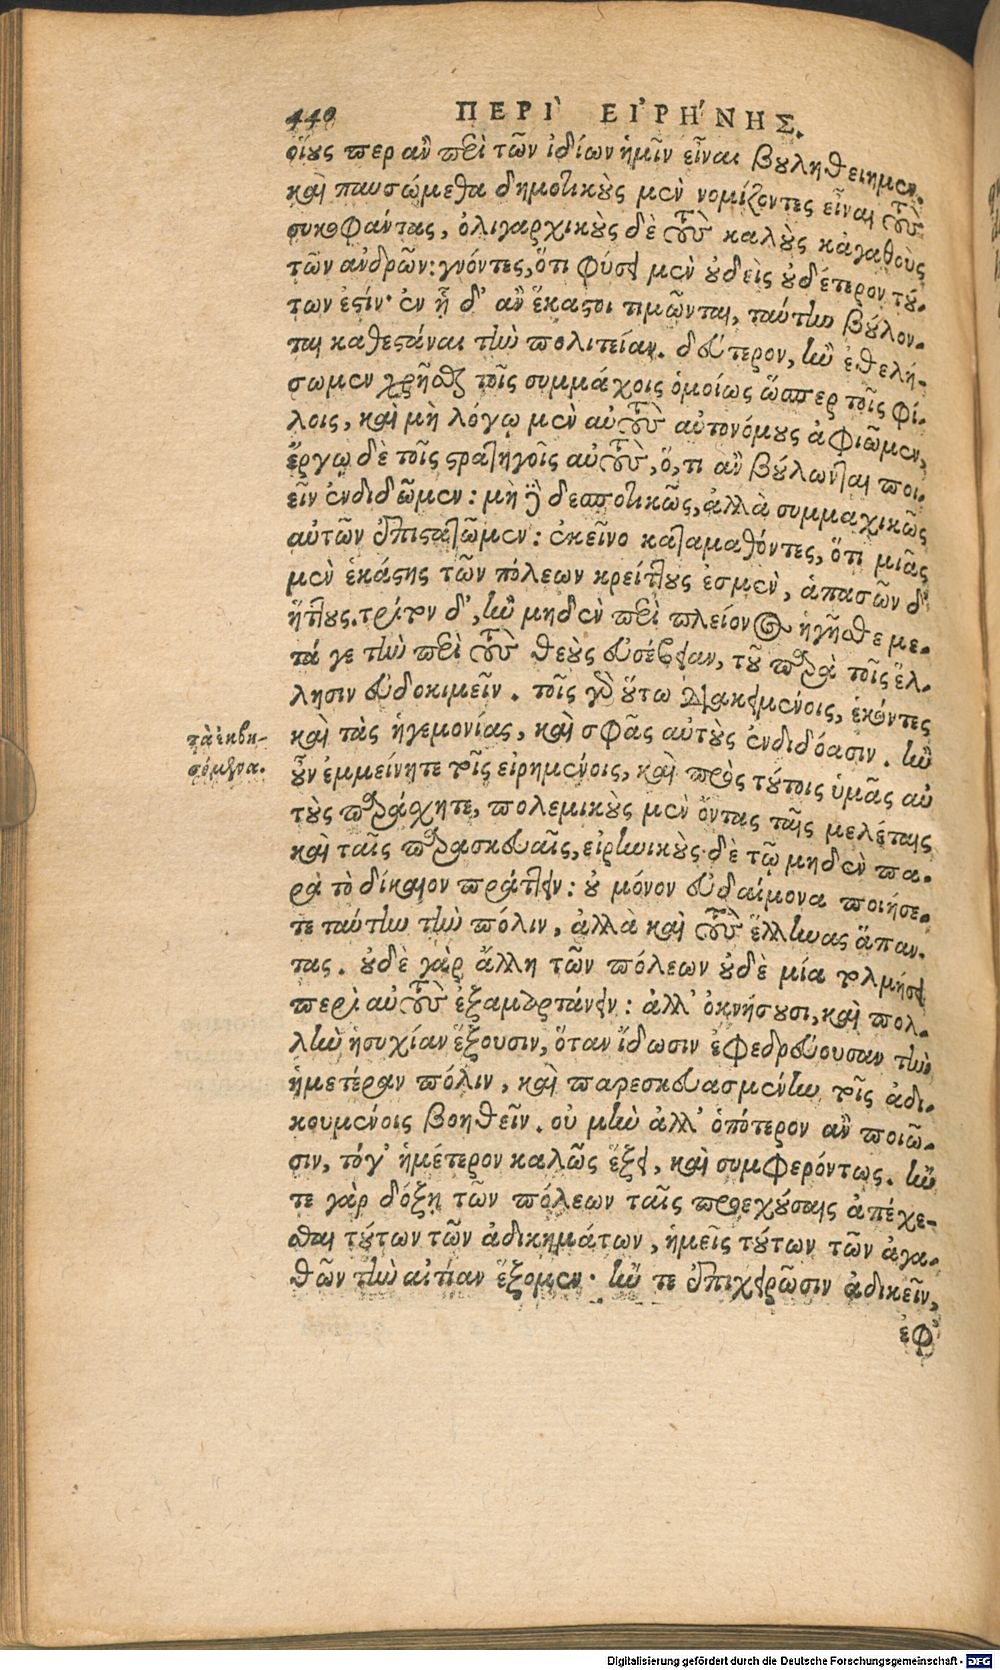 440 ΠΕΡΙ ΕΙΡΗΝΗΣ.
οἵους περ ἂν περὶ τῶν ἰδίων ἡμῖν εἶναι βουληθείημεν.
καὶ παυσώμεθα δημοτικοὺς μὲν νομίζοντες εἶναι τοὺς
συκοφάντας, ὀλιγαρχικοὺς δὲ τοὺς καλοὺς κἀγαθοὺς
τῶν ἀνδρῶν: γνόντες, ὅτι φύσει μὲν οὐδεὶς οὐδέτερον τού-
των ἐστίν· ἐν ᾗ δ' ἂν ἕκαστοι τιμῶνται, ταύτην βούλον-
ται καθεστάναι τὴν πολιτείαν. δεύτερον, ἢν ἐθελή-
σωμεν χρῆσθαι τοῖς συμμάχοις ὁμοίως ὥσπερ τοῖς φί-
λοις, καὶ μὴ λόγῳ μὲν αὐτοὺς αὐτονόμους ἀφιῶμεν,
ἔργῳ δὲ τοῖς στρατηγοῖς αὐτοὺς, ὅ,τι ἂν βούλωνται ποι-
εῖν ἐνδιδῶμεν: μὴ δὲ δεσποτικῶς, ἀλλὰ συμμαχικῶς
αὐτῶν ἐπιστατῶμεν: ἐκεῖνο καταμαθόντες, ὅτι μιᾶς
μὲν ἑκάστης τῶν πόλεων κρείττους ἐσμὲν, ἁπασῶν δ'
ἥττους. τρίτον δ', ἢν μηδὲν περὶ πλείονος ἡγῆσθε με-
τά γε τὴν περὶ τοὺς θεοὺς εὐσέβειαν, τοῦ παρὰ τοῖς ἕλ-
λησιν εὐδοκιμεῖν. τοῖς γὰρ οὕτω διακειμένοις, ἑκόντες
καὶ τὰς ἡγεμονίας, καὶ σφᾶς αὐτοὺς ἐνδιδόασιν. ἢν
τὰ ἐκβη-
σόμενα.
οὖν ἐμμείνητε τοῖς εἰρημένοις, καὶ πρὸς τούτοις ὑμᾶς αὐ
τοὺς παράχητε, πολεμικοὺς μὲν ὄντας ταῖς μελέταις
καὶ ταῖς παρασκευαῖς, εἰρηνικοὺς δὲ τῷ μηδὲν πα-
ρὰ τὸ δίκαιον πράττειν: οὐ μόνον εὐδαίμονα ποιήσε-
τε ταύτην τὴν πόλιν, ἀλλὰ καὶ τοὺς ἕλληνας ἅπαν-
τας. οὐδὲ γὰρ ἄλλη τῶν πόλεων οὐδὲ μία τολμήσει
περὶ αὐτοὺς ἐξαμαρτάνειν: ἀλλ' ὀκνήσουσι, καὶ πολ-
λὴν ἡσυχίαν ἕξουσιν, ὅταν ἴδωσιν ἐφεδρεύουσαν τὴν
ἡμετέραν πόλιν, καὶ παρεσκευασμένην τοῖς ἀδι-
κουμένοις βοηθεῖν. οὐ μὴν ἀλλ' ὁπότερον ἂν ποιῶ-
σιν, τόγ' ἡμέτερον καλῶς ἕξει, καὶ συμφερόντως. ἤν
τε γὰρ δόξῃ τῶν πόλεων ταῖς προεχούσαις ἀπέχε-
σθαι τούτων τῶν ἀδικημάτων, ἡμεῖς τούτων τῶν ἀγα-
θῶν τὴν αἰτίαν ἕξομεν· ἤν τε ἐπιχειρῶσιν ἀδικεῖν,
ἐφ'
Digitalisierung gefördert durch die Deutsche Forschungsgemeinschaft - DFG